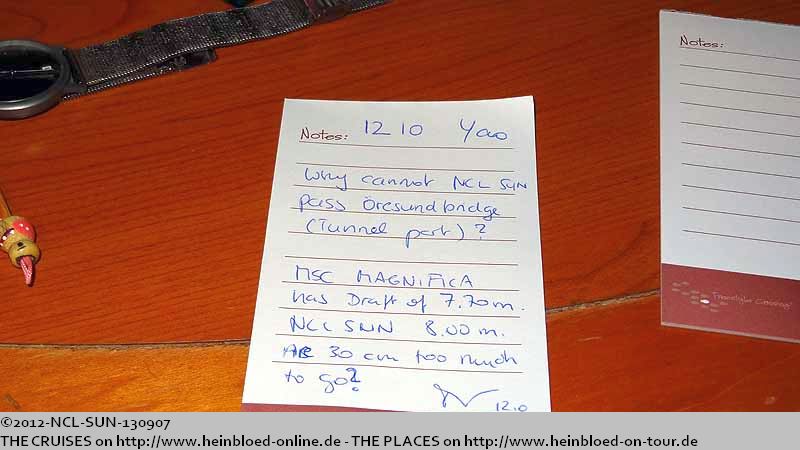 Notes: 1210 Yao
Why cannot NCL SUN
pass Öresundbridge
(Tunnel part)?
MSC MAGNIFICA
has Draft of 7.70m.
NCL SNN 8.00 m.
Are 30 cm too much
to go?
12.0
Notes:
Freestyle Cruising
©2012-NCL-SUN-130907
THE CRUISES on http://www.heinbloed-online.de - THE PLACES on http://www.heinbloed-on-tour.de